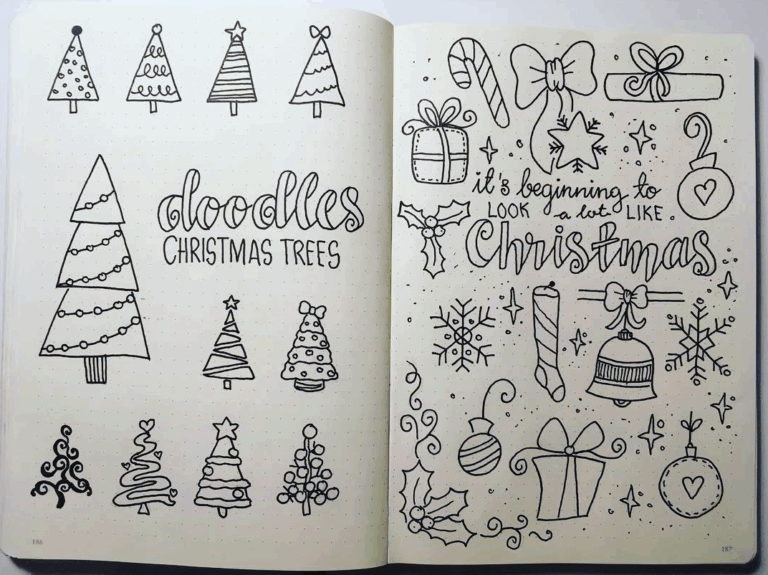 doodles
CHRISTMAS TREES
186
it's beginning to
LOOK a lot LIKE.
Christmas
187